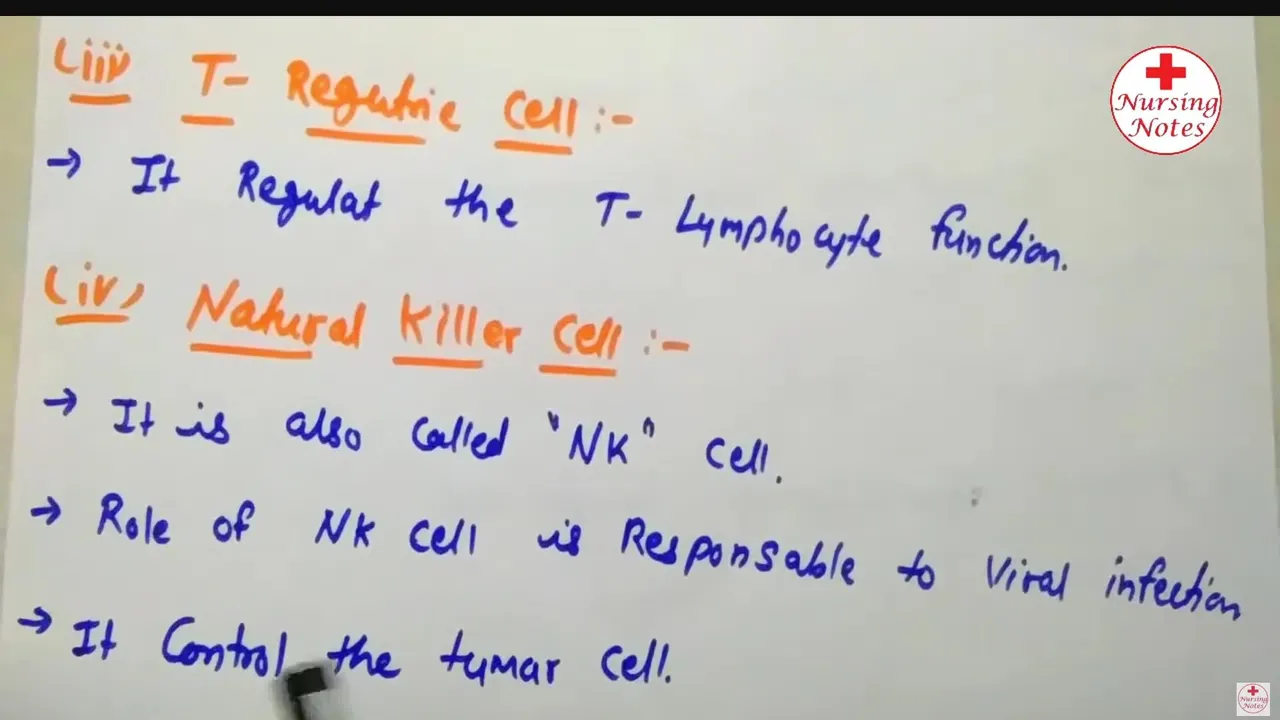 (iii) T- Regutrie Cell :-
→ It Regulat the T- Lymphocyte function.
(iv) Natural Killer Cell :-
→ It is also Called "NK" Cell.
→ Role of NK Cell is Responsable to Viral infection
→ It Control the tumar Cell.
Nursing
Notes
Nursing
Notes